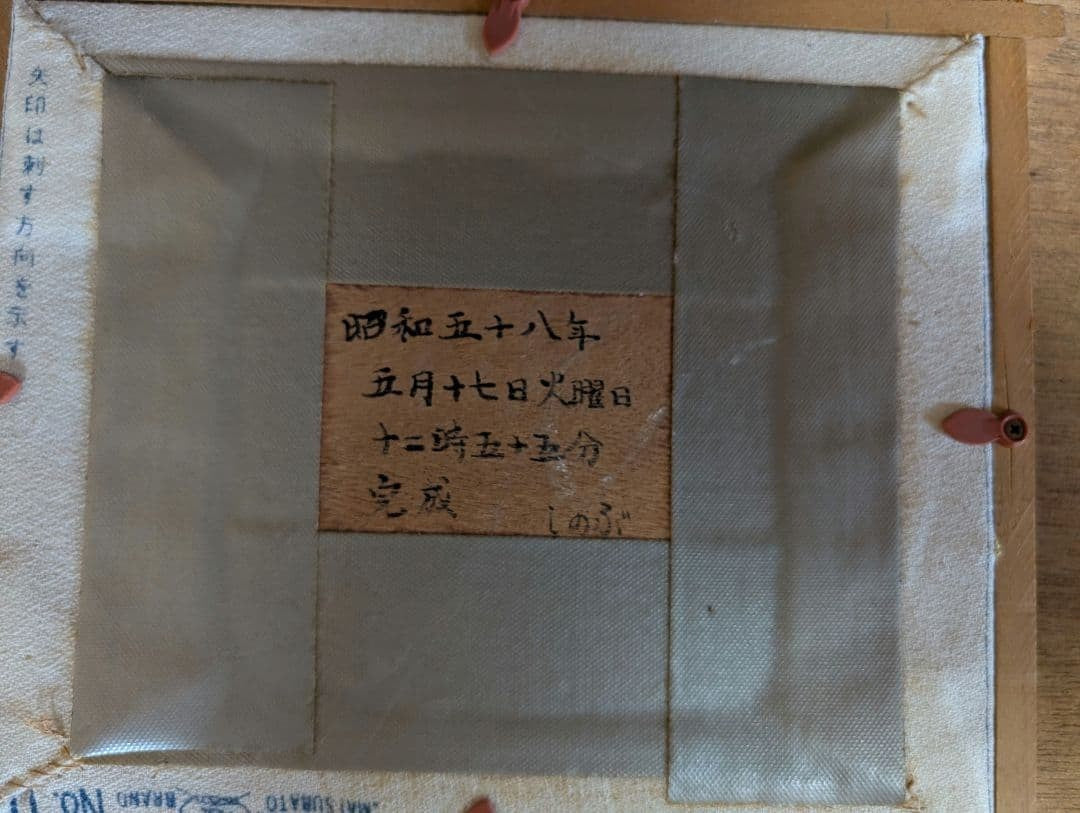 矢印は刺す方向を示す
昭和五十八年
五月十七日火曜日
十二時五十五分
完成
しのぶ
MATSUBATO BRAND No. 17